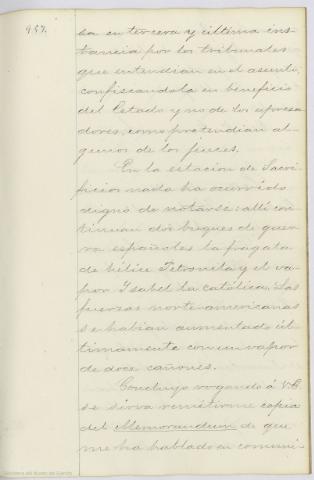 957.
sa en tercera y última ins-
tancia por los tribunales
que entendian en el asunto,
confiscandola en beneficio
del Estado y no de los apresa
dores, como pretendian al-
gunos de los jueces.
En la estacion de Sacri-
ficios nada ha ocurrido
digno de notarse: alli con-
tinuan dos buques de guer-
ra españoles la fragata
de hélice Petronila y el va-
por Isabel la católica. Las
fuerzas norte-americanas
se habian aumentado úl-
timamente con un vapor
de doce cañones.
Concluyo rogando á V.E.
se sirva remitirme copia
del Memorandum de que
me ha hablado en comuni-